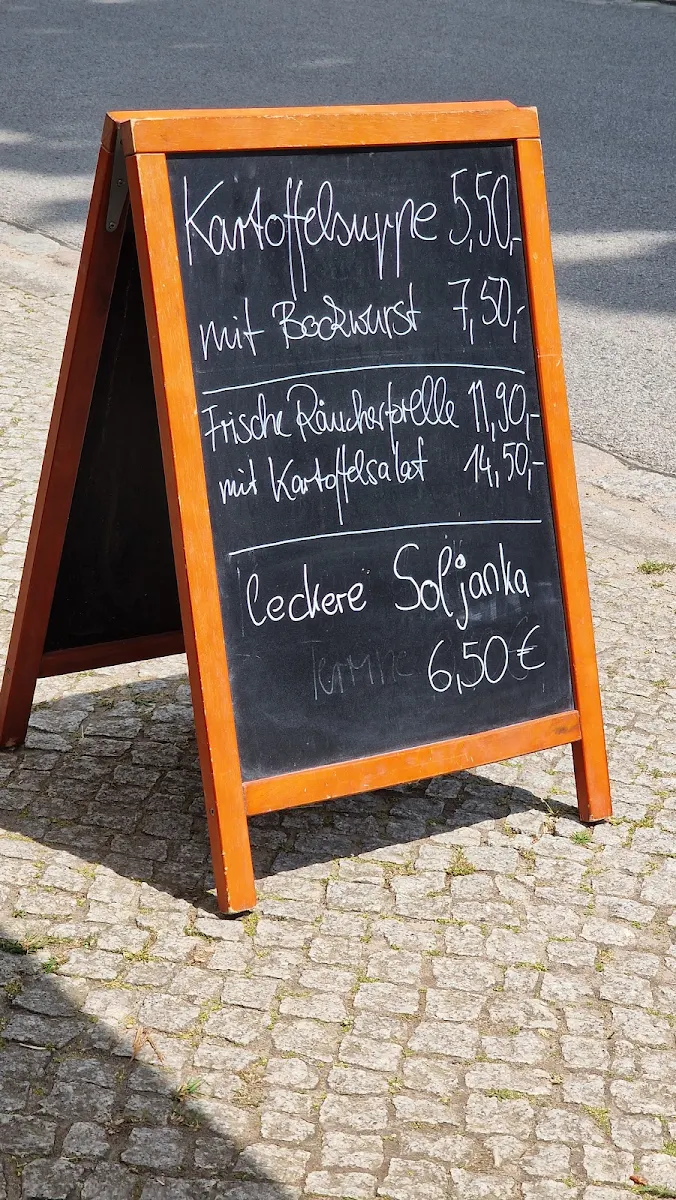 Kartoffelsuppe 5,50,-
mit Bockwurst 7,50,-
Frische Räucherforelle 11,90,-
mit Kartoffelsalat 14,50,-
leckere Soljanka
6,50 €